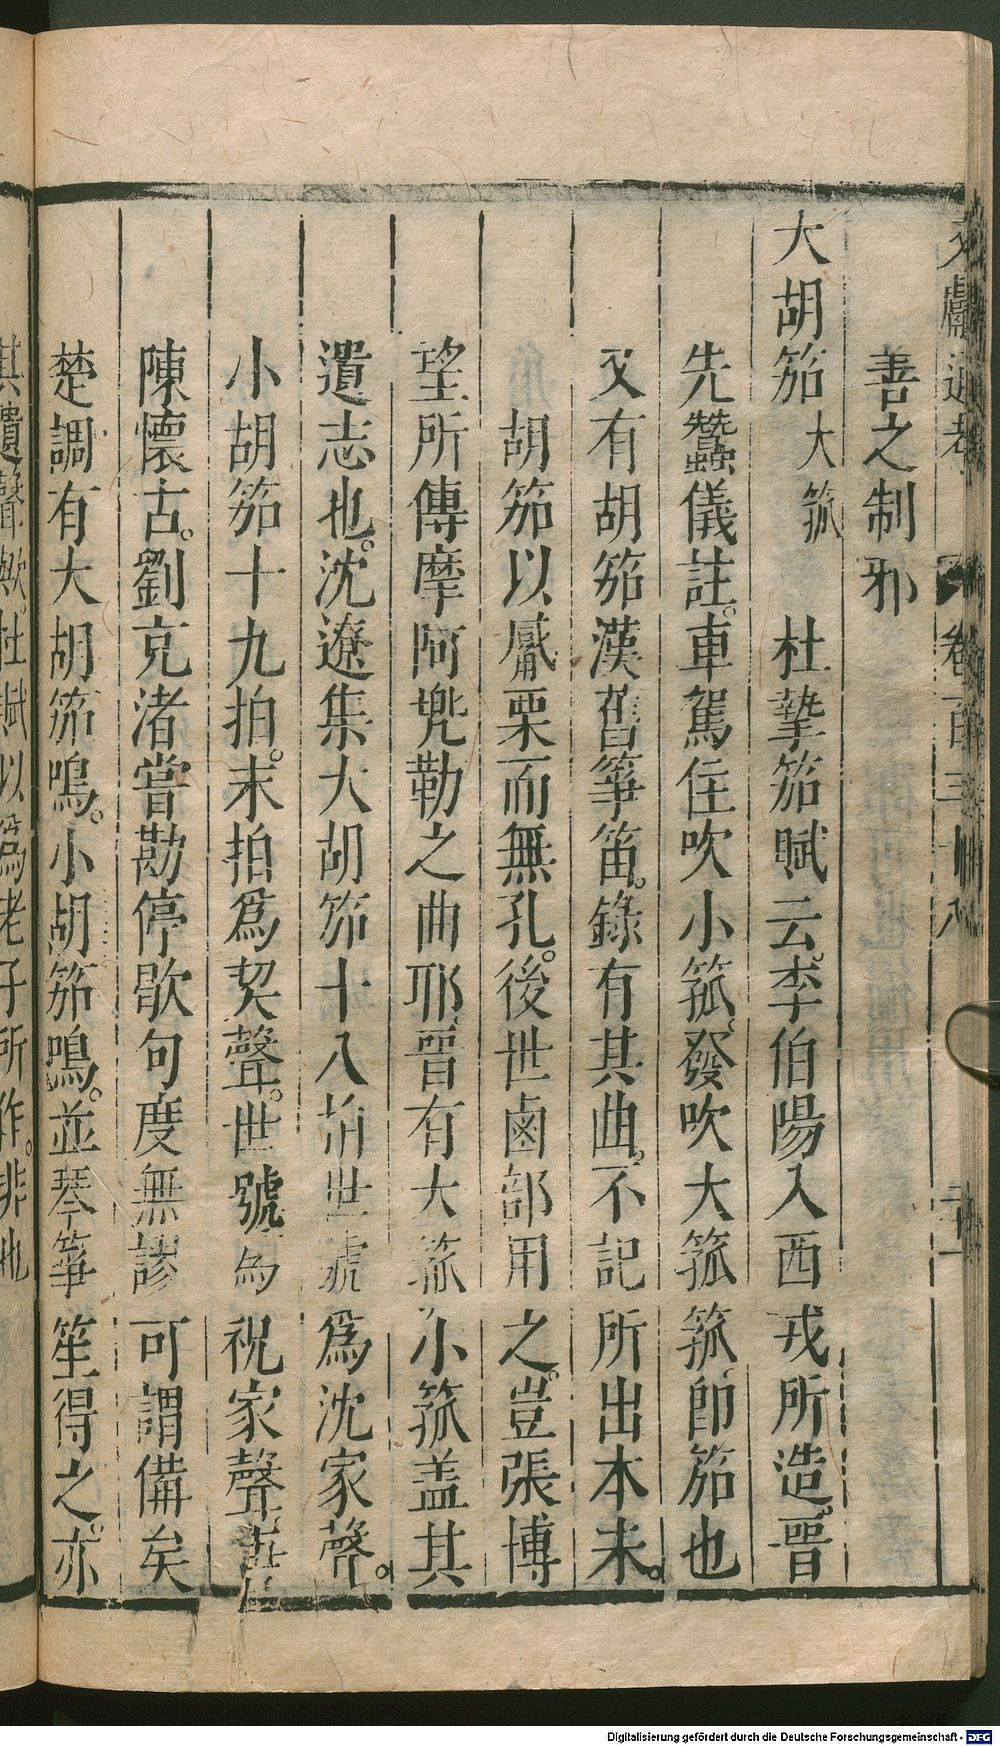 文獻通考 卷一百三十八 二十一
善之制邪
大胡笳 大箛 杜摯笳賦云。李伯陽入西戎所造。晉
先蠶儀註。車駕住吹小箛。發吹大箛。箛即笳也
又有胡笳漢舊箏笛。錄有其曲。不記所出本末。
胡笳以觱栗而無孔。後世鹵部用之。豈張博
望所傳摩阿兜勒之曲耶。晉有大箛小箛蓋其
遺志也。沈遼集大胡笳十八拍世號爲沈家聲。
小胡笳十九拍。末拍爲契聲。世號為祝家聲。
陳懷古。劉克渚嘗勘停歇句度無謬可謂備矣
楚調有大胡笳鳴。小胡笳鳴。並琴箏笙得之。亦
其遺聲歟。杜賦以爲老子所作。非也
Digitalisierung gefördert durch die Deutsche Forschungsgemeinschaft - DFG